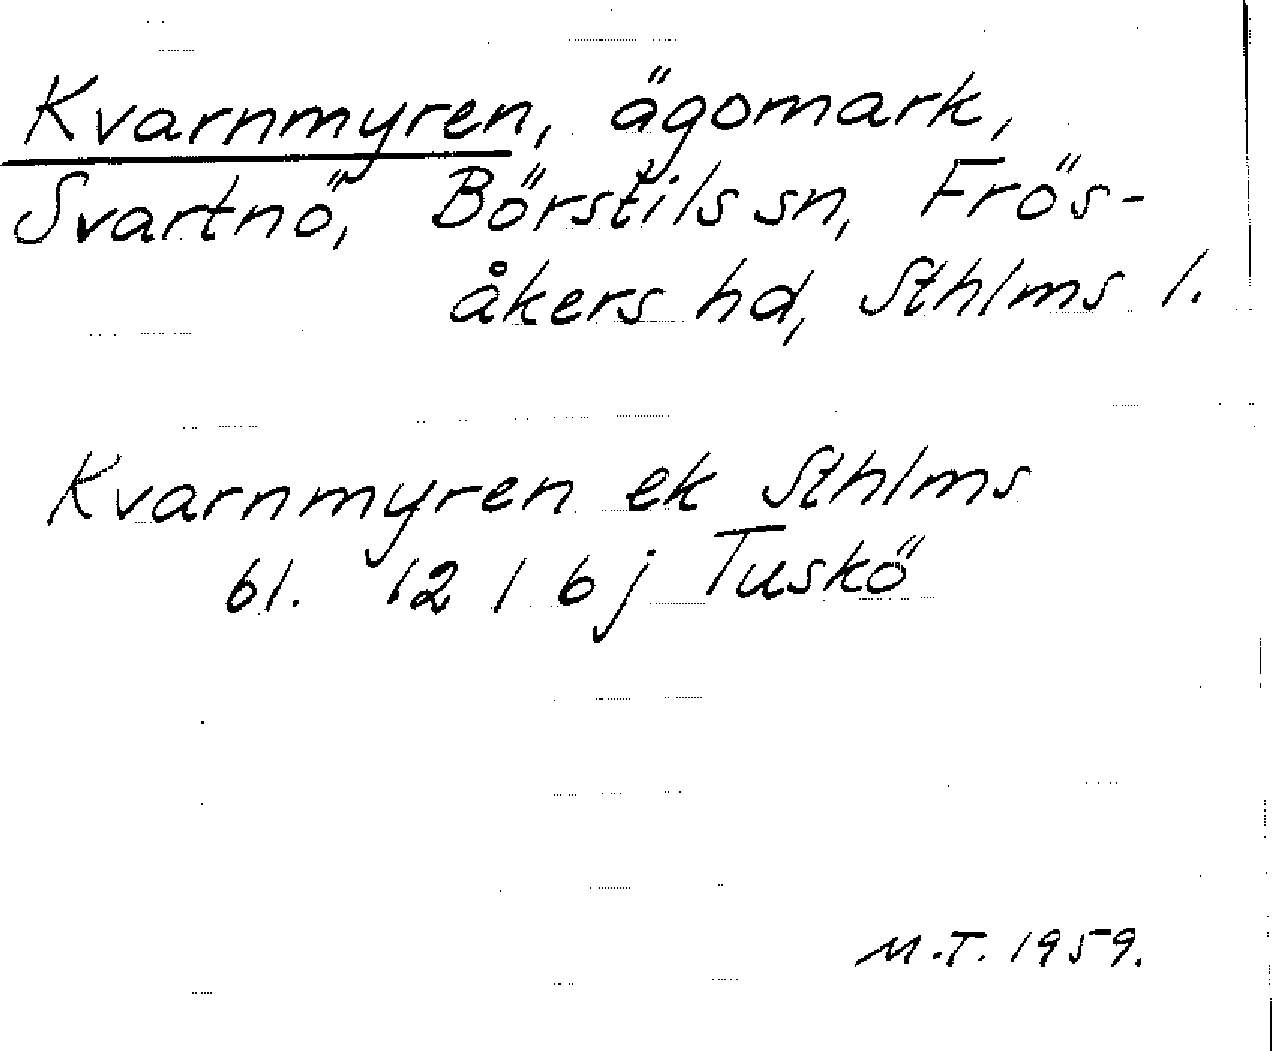 Kvarnmyren, ägomark,
Svartnö, Börstils sn, Frös-
åkers hd, Sthlms l.
Kvarnmyren ek Sthlms
bl. 12 I 6 j Tuskö
M.T. 1959.